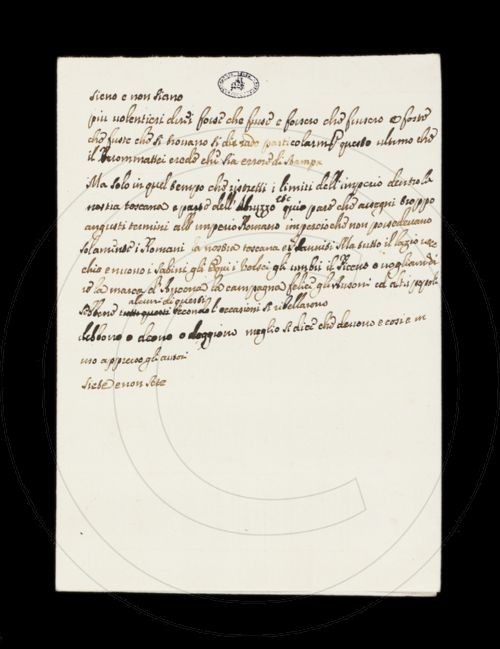 sieno e non siano
più volentieri dirà forse che fusse e forsero che fussero e forse
che fusse che si trovano si dice rado particolarm.te questo ultimo che
il Buommattei crede che sia errore di stampa
Ma solo in quel tempo che ristretti i limiti dell'imperio dentro la
nostra toscana e parte dell'Abruzzo etc qui pare che assegni troppo
angusti termini all'imperio Romano imperciò che non possedevano
solamente i Romani la nostra toscana e i sanniti Ma tutto il lazio vec
chio e nuovo i sabini gli Equi i volsci gli umbri il Piceno o vogliam di
re la marca d'Ancona la campagna felice gli Ausoni ed altri popoli
alcuni di questi
sebbene tutti questi secondo l'occasioni si ribellarono
debbono o deono o deggiono meglio si dice che devono e così e in
uso appresso gli autori
siete e non sete